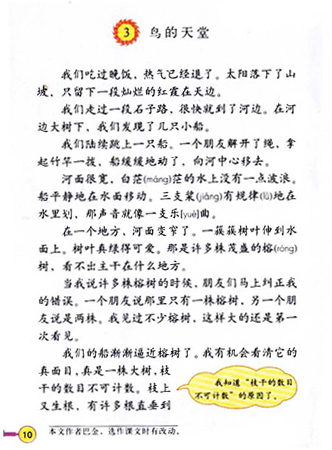 3 鸟的天堂
我们吃过晚饭，热气已经退了。太阳落下了山
坡，只留下一段灿烂的红霞在天边。
我们走过一段石子路，很快就到了河边。在河
边大树下，我们发现了几只小船。
我们陆续跳上一只船。一个朋友解开了绳，拿
起竹竿一拨，船缓缓地动了，向河中心移去。
河面很宽，白茫(máng)茫的水上没有一点波浪。
船平静地在水面移动。三支桨(jiǎng)有规律(lǜ)地在
水里划，那声音就像一支乐(yuè)曲。
在一个地方，河面变窄了。一簇簇树叶伸到水
面上。树叶真绿得可爱。那是许多株茂盛的榕(róng)
树，看不出主干在什么地方。
当我说许多株榕树的时候，朋友们马上纠正我
的错误。一个朋友说那里只有一株榕树，另一个朋
友说是两株。我见过不少榕树，这样大的还是第一
次看见。
我们的船渐渐逼近榕树了。我有机会看清它的
真面目，真是一株大树，枝
干的数目不可计数。枝上
又生根，有许多根直垂到
我知道“枝干的数目
不可计数”的原因了。
10 本文作者巴金，选作课文时有改动。